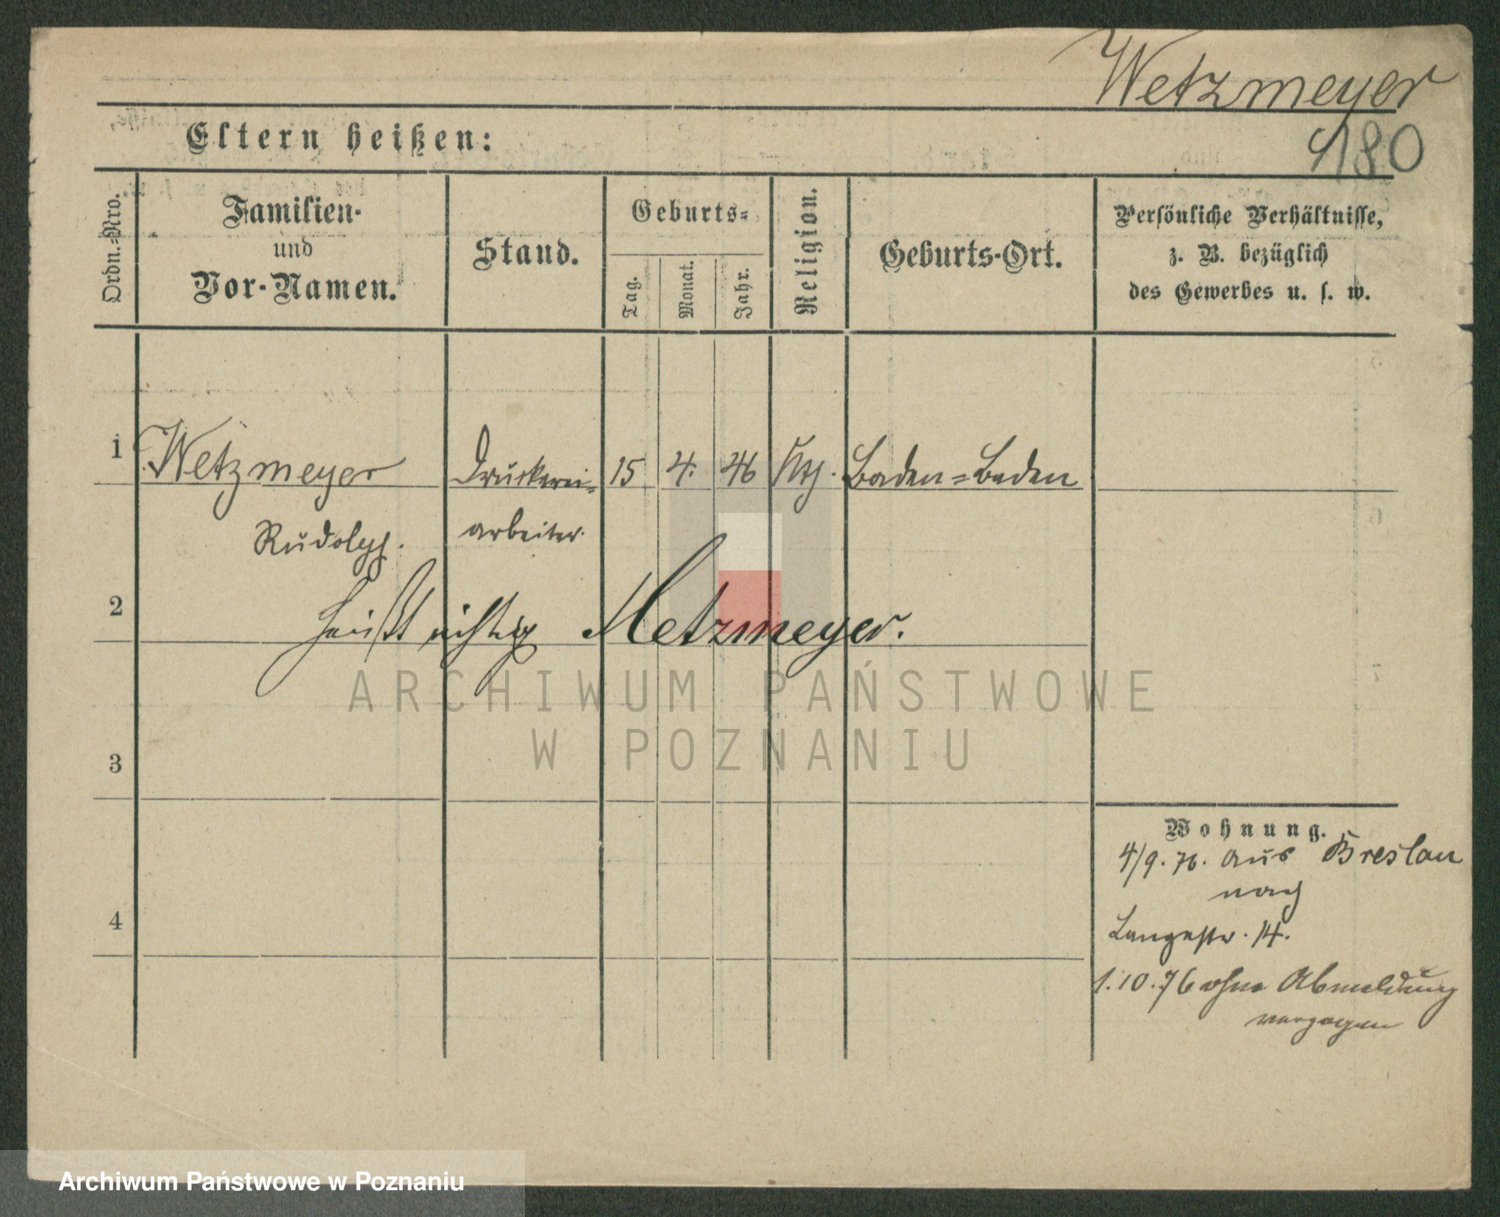 Wetzmeyer
180
Eltern heißen:
Ordn.-Nro.
Familien- und Vor-Namen.
Stand.
Geburts-
Tag.
Monat.
Jahr.
Religion.
Geburts-Ort.
Persönliche Verhältnisse,
z. B. bezüglich
des Gewerbes u. s. w.
1 Wetzmeyer Druckerei- 15 4. 46 Kth. Baden=Baden
Rudolph. arbeiter.
2 heißt richtig Metzmeyer.
ARCHIWUM PAŃSTWOWE
W POZNANIU
3
Wohnung.
4/9. 76. aus Breslau
nach
4
Langestr. 14.
1.10.76 ohne Abmeldung
verzogen
Archiwum Państwowe w Poznaniu